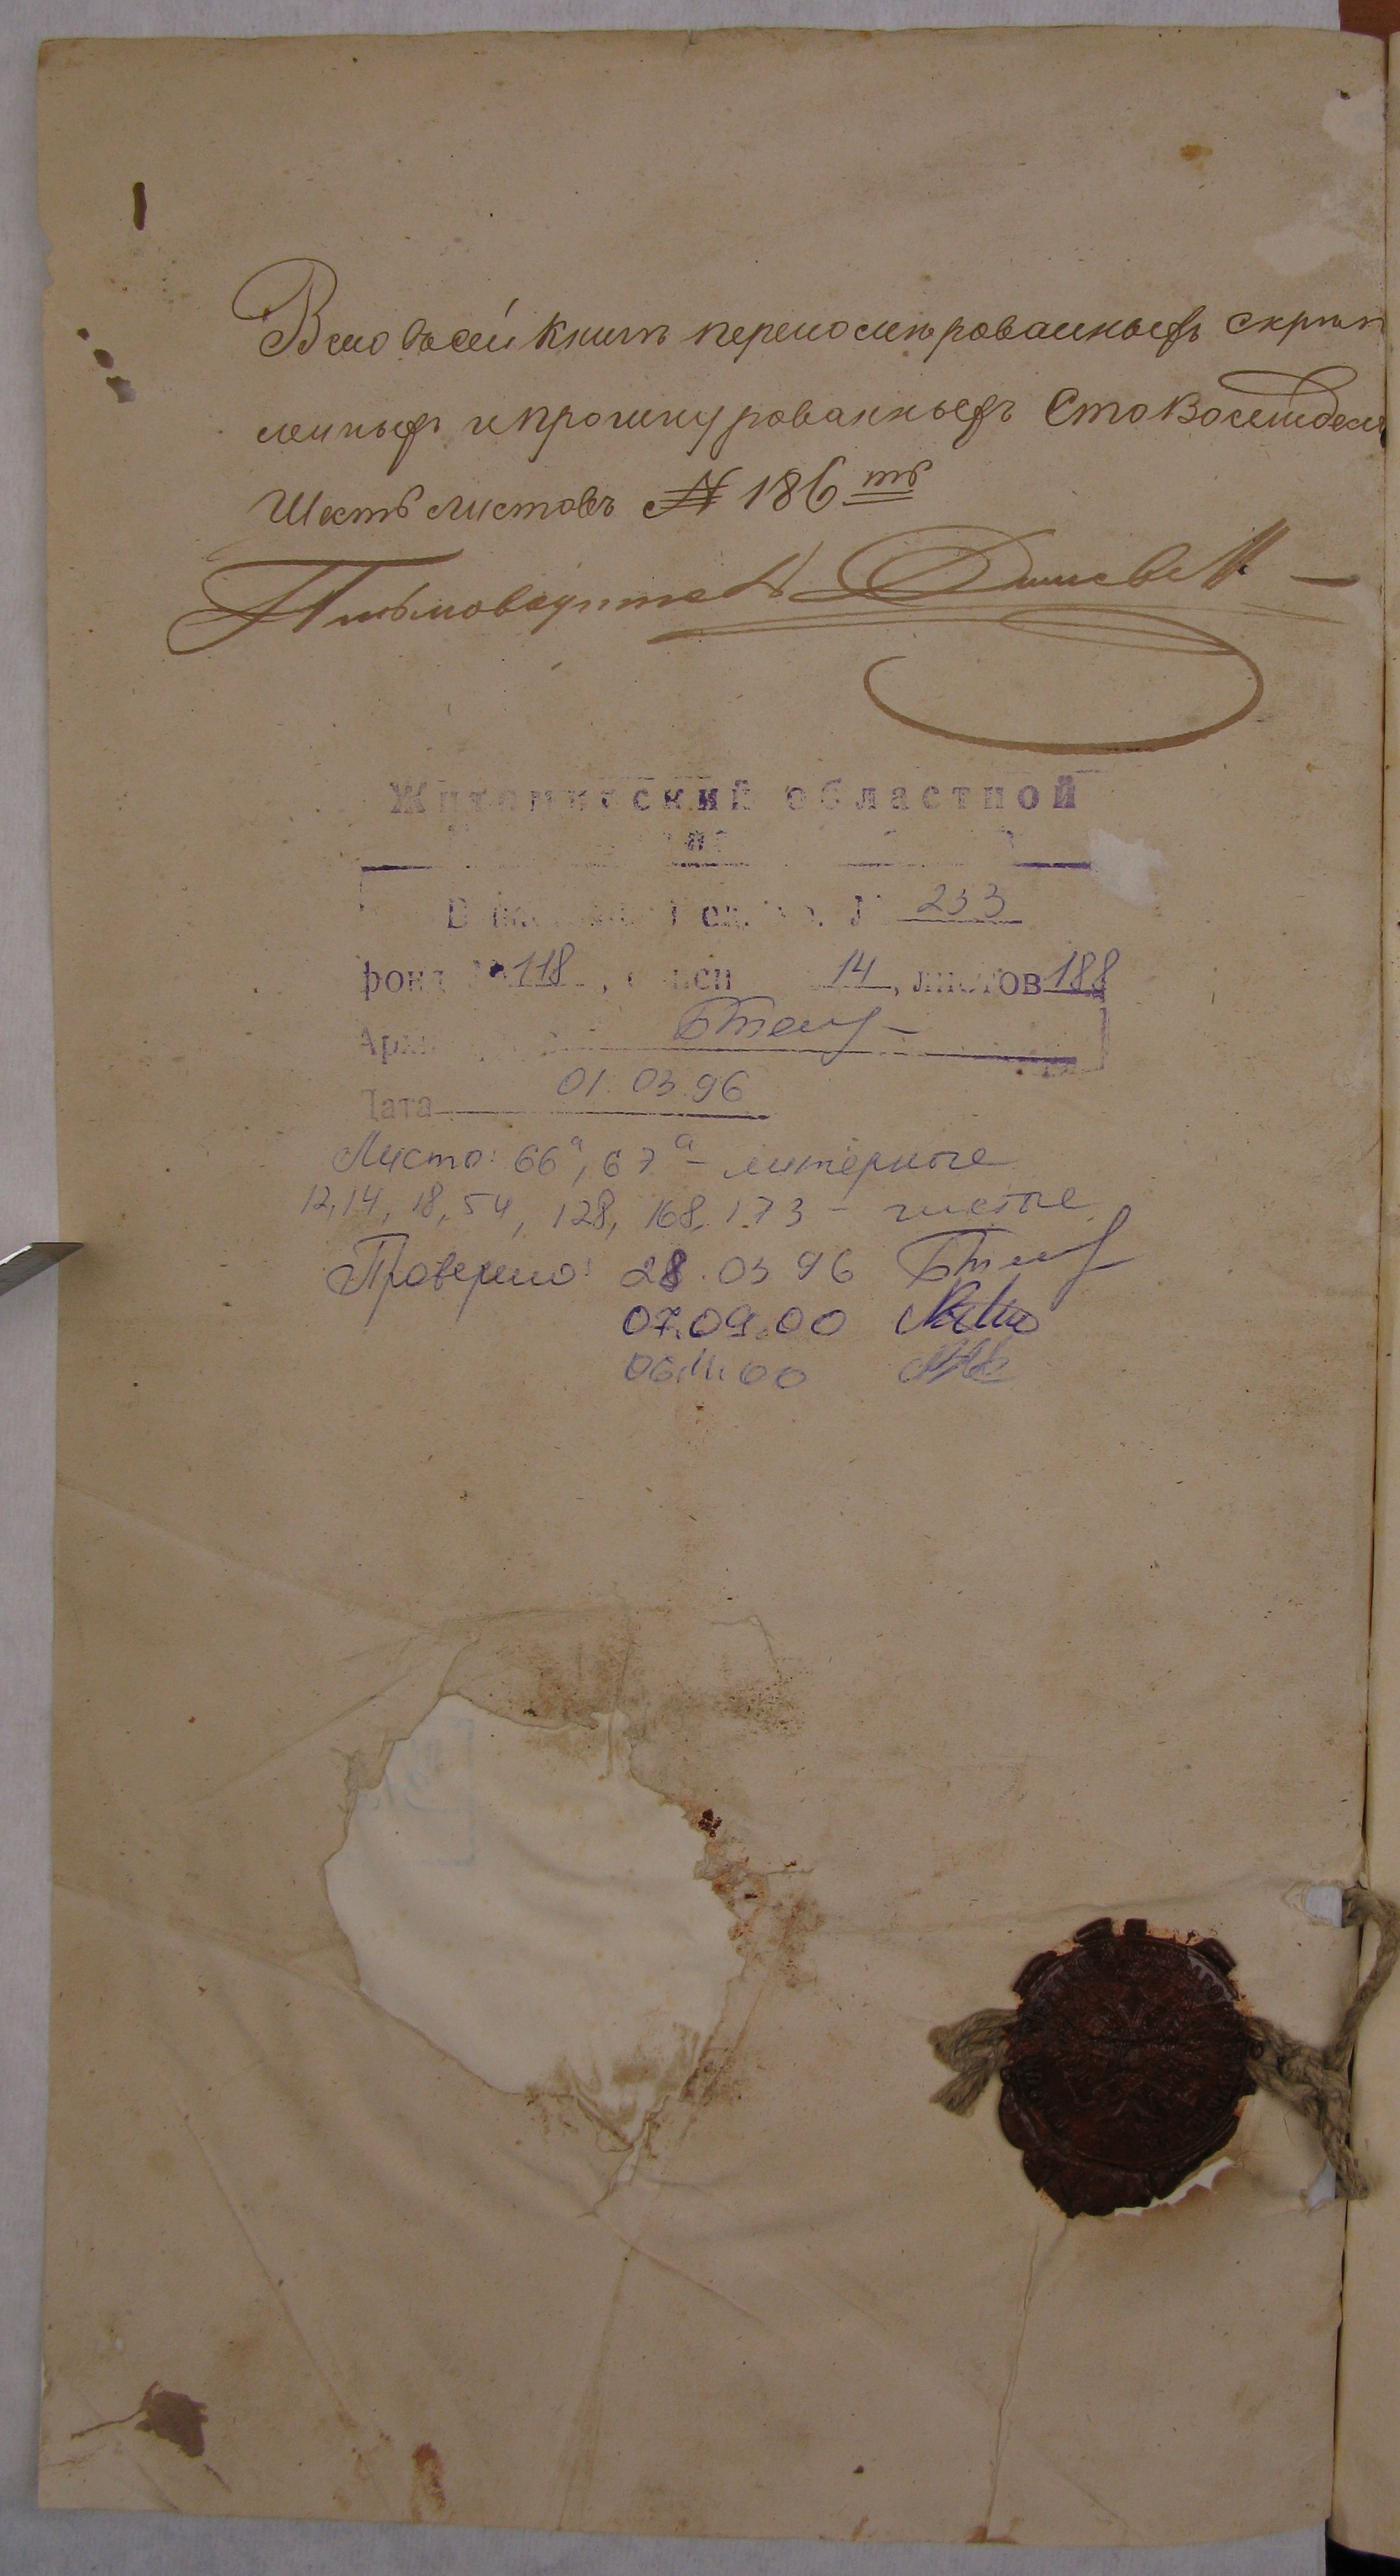 Всего въ сей книгѣ перенумерованныхъ скрѣп
ленныхъ и прошнурованныхъ Сто Восемдеся
Шесть листовъ № 186 ть
Письмоводитель
Житомирский областной
ед. 233
фонд № 118, описи 14, листов 188
Архи
Дата 01.03.96
Листы: 66а, 67а – литерные
12, 14, 18, 54, 128, 168, 173 – чистые
Проверено: 28.03.96
07.09.00
06.11.00